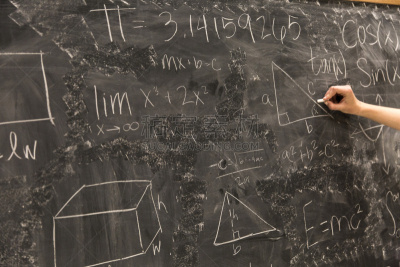 π = 3.14159265
cos(x)
mx+b=c
tanθ
sin(x
lim x³+2x²
x→∞
a
b
lw
h
w
h
b
E=mc²